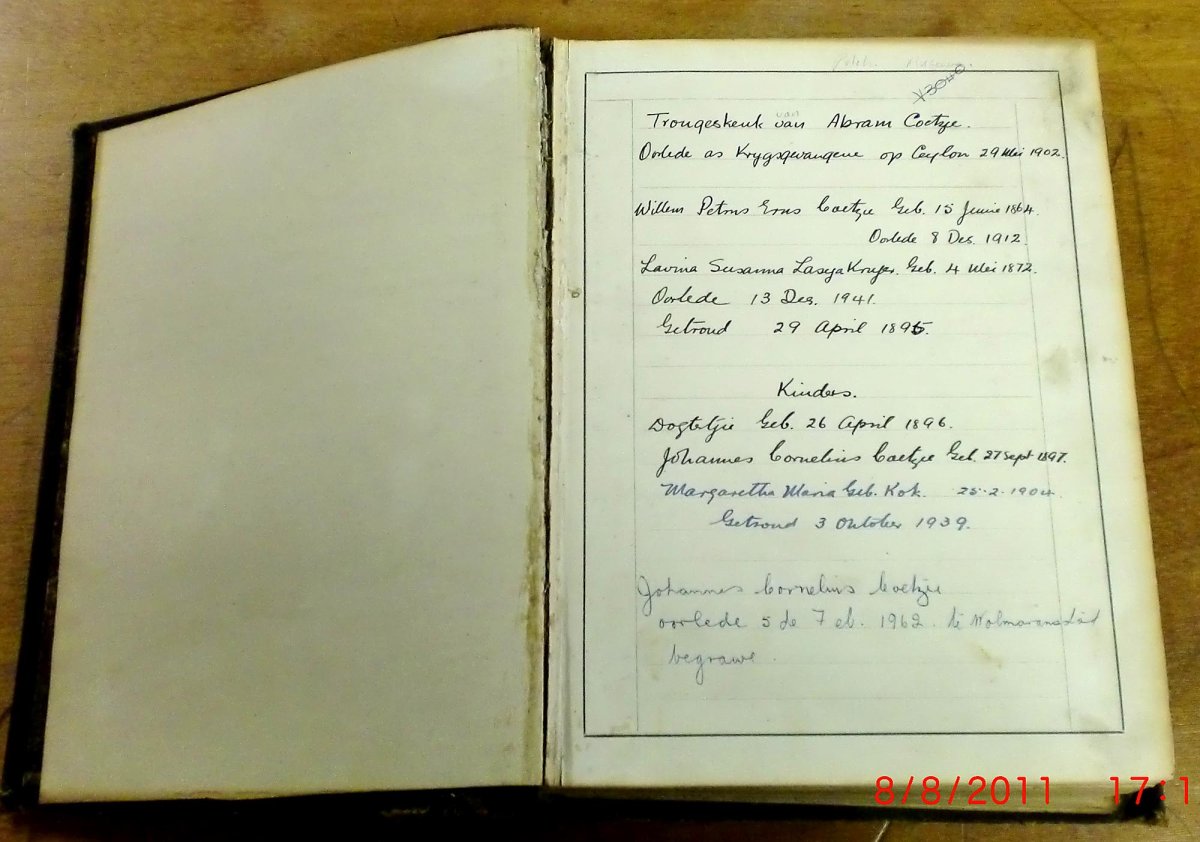 V3040
Trougeskenk van Abram Coetzje.
Oorlede as Krygsgevangene op Ceylon 29 Mei 1902.
Willem Petrus Erns Coetzje Geb. 15 Junie 1864.
Oorlede 8 Des. 1912.
Lavina Susanna Kruger. Geb. 4 Mei 1872.
Oorlede 13 Des. 1941.
Getroud 29 April 1895.
Kinders.
Dogtertjie Geb. 26 April 1896.
Johannes Cornelius Coetzje Geb. 27 Sept 1897.
Margaretha Maria Geb. Kok. 25-2-1904.
Getroud 3 Oktober 1939.
Johannes Cornelius Coetzje
oorlede 5 de Feb. 1962. te Wolmaransstad
begrawe.
8/8/2011 17:1